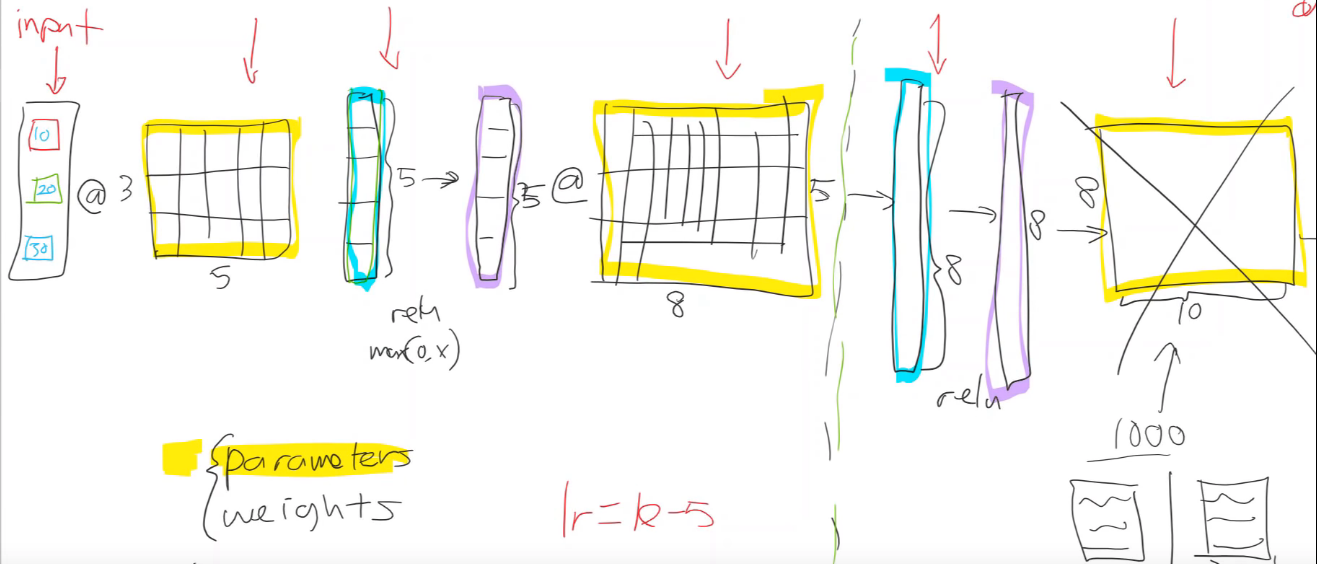 input
10
20
30
@ 3
5
5
relu
max(0,x)
5 @
5
8
8
relu
8
8
10
1000
parameters
weights
lr=1e-5